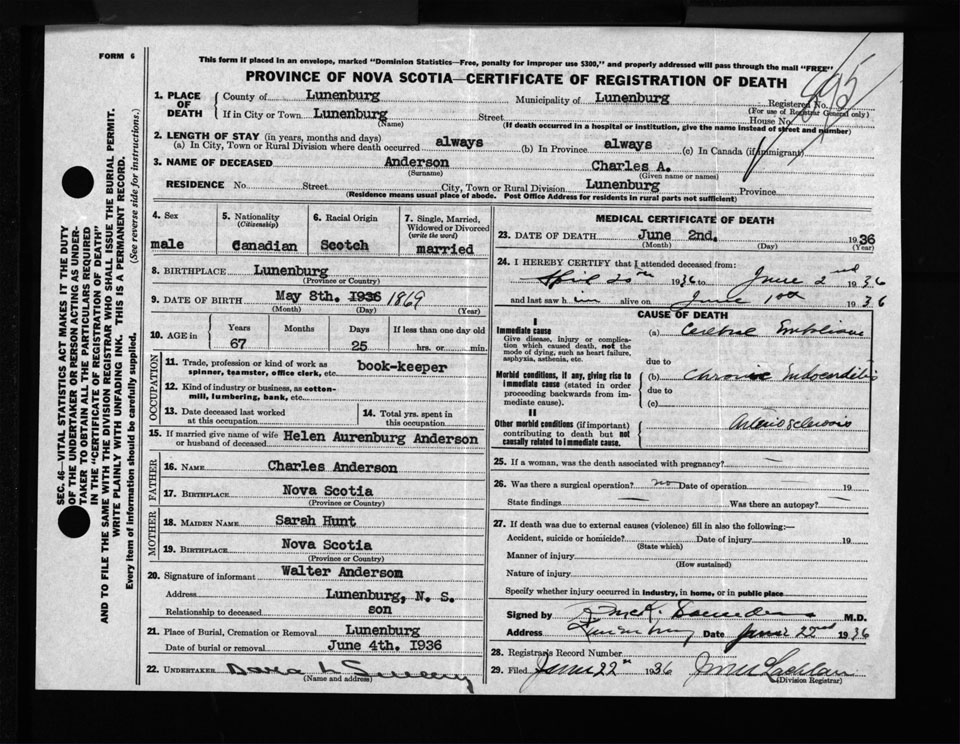 FORM 6
This form if placed in an envelope, marked "Dominion Statistics—Free, penalty for improper use $300," and properly addressed will pass through the mail "FREE"
PROVINCE OF NOVA SCOTIA—CERTIFICATE OF REGISTRATION OF DEATH
895
1. PLACE OF DEATH { County of Lunenburg Municipality of Lunenburg Registered No.
(For use of Registrar General only)
If in City or Town Lunenburg Street House No.
(Name) (If death occurred in a hospital or institution, give the name instead of street and number)
2. LENGTH OF STAY (in years, months and days)
(a) In City, Town or Rural Division where death occurred always (b) In Province always (c) In Canada (if immigrant)
3. NAME OF DECEASED Anderson Charles A.
(Surname) (Given name or names)
RESIDENCE No. Street City, Town or Rural Division Lunenburg Province
(Residence means usual place of abode. Post Office Address for residents in rural parts not sufficient)
4. Sex 5. Nationality (Citizenship) 6. Racial Origin 7. Single, Married, Widowed or Divorced (write the word)
male Canadian Scotch married
8. BIRTHPLACE Lunenburg
(Province or Country)
9. DATE OF BIRTH May 8th. 1936 1869
(Month) (Day) (Year)
10. AGE in Years Months Days If less than one day old
67 25 hrs. or min.
OCCUPATION
11. Trade, profession or kind of work as spinner, teamster, office clerk, etc. book-keeper
12. Kind of industry or business, as cotton-mill, lumbering, bank, etc.
13. Date deceased last worked at this occupation
14. Total yrs. spent in this occupation
15. If married give name of wife or husband of deceased Helen Aurenburg Anderson
FATHER
16. NAME Charles Anderson
17. BIRTHPLACE Nova Scotia
(Province or Country)
MOTHER
18. MAIDEN NAME Sarah Hunt
19. BIRTHPLACE Nova Scotia
(Province or Country)
20. Signature of informant Walter Anderson
Address Lunenburg, N. S.
Relationship to deceased son
21. Place of Burial, Cremation or Removal Lunenburg
Date of burial or removal June 4th. 1936
22. UNDERTAKER
(Name and address)
MEDICAL CERTIFICATE OF DEATH
23. DATE OF DEATH June 2nd. 1936
(Month) (Day) (Year)
24. I HEREBY CERTIFY that I attended deceased from:
April 20th 1936 to June 2nd 1936
and last saw him alive on June 1936
CAUSE OF DEATH
I
Immediate cause
Give disease, injury or complication which caused death, not the mode of dying, such as heart failure, asphyxia, asthenia, etc.
(a) Cerebral Embolism
due to
Morbid conditions, if any, giving rise to immediate cause (stated in order proceeding backwards from immediate cause).
(b) Chronic Endocarditis
due to
(c)
II
Other morbid conditions (if important) contributing to death but not causally related to immediate cause.
Arteriosclerosis
25. If a woman, was the death associated with pregnancy?
26. Was there a surgical operation? no Date of operation 19
State findings Was there an autopsy?
27. If death was due to external causes (violence) fill in also the following:—
Accident, suicide or homicide? Date of injury 19
(State which)
Manner of injury
(How sustained)
Nature of injury
Specify whether injury occurred in industry, in home, or in public place
Signed by M.D.
Address Lunenburg Date June 22nd 1936
28. Registrar's Record Number
29. Filed June 22nd 1936
(Division Registrar)
SEC. 46—VITAL STATISTICS ACT MAKES IT THE DUTY
OF THE UNDERTAKER OR PERSON ACTING AS UNDER-
TAKER TO OBTAIN ALL THE PARTICULARS REQUIRED
IN THE "CERTIFICATE OF REGISTRATION OF DEATH"
AND TO FILE THE SAME WITH THE DIVISION REGISTRAR WHO SHALL ISSUE THE BURIAL PERMIT.
WRITE PLAINLY WITH UNFADING INK. THIS IS A PERMANENT RECORD.
Every item of information should be carefully supplied. (See reverse side for instructions.)